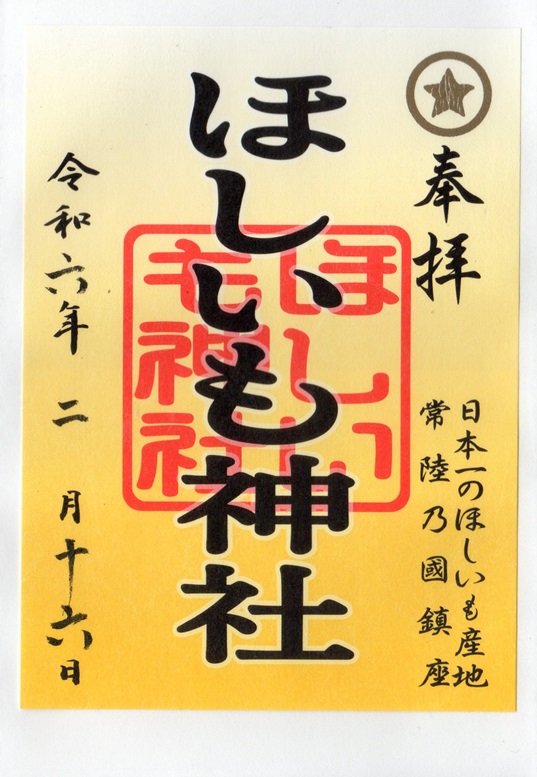 奉拝
日本一のほしいも産地
常陸乃國鎮座
ほしいも神社
ほしい
も神社
令和六年 二 月十六日